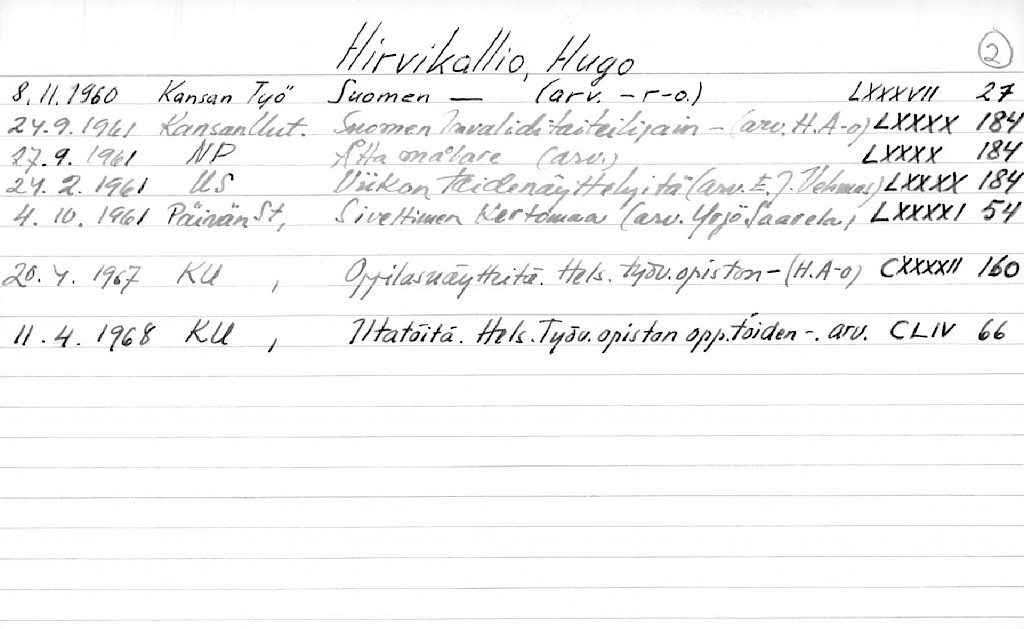 Hirvikallio, Hugo 2
8.11.1960 Kansan Työ Suomen — (arv. -r-o.) LXXXVII 27
24.9.1961 Kansan Uut. Suomen Invaliditaiteilijain - (arv. H.A-o) LXXXX 184
27.9. 1961 NP Åtta målare (arv.) LXXXX 184
24. 2. 1961 US Viikon taidenäyttelyitä (arv. E. J. Vehmas) LXXXX 184
4. 10. 1961 Päivän St, Siveltimen Kertomaa (arv. Yrjö Saarela) LXXXXI 54
20. 4. 1967 KU , Oppilasnäytteitä. Hels. työv. opiston - (H.A-o) CXXXXII 160
11. 4. 1968 KU , Iltatöitä. Hels. Työv. opiston opp. töiden -. arv. CLIV 66